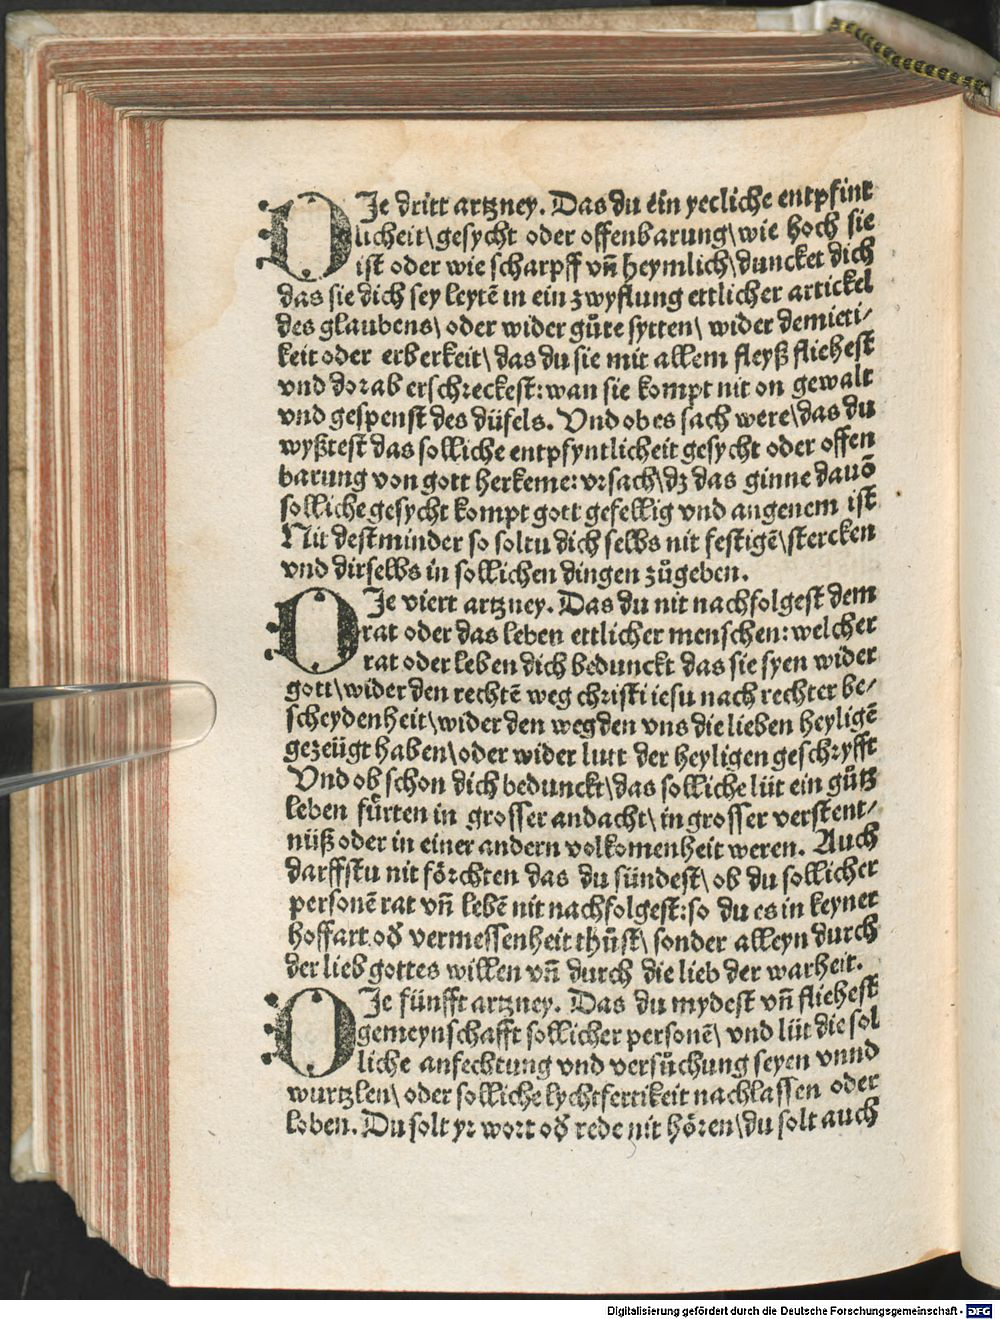 DJe dritt artzney. Das du ein yecliche entpfint
licheit\gesycht oder offenbarung\wie hoch sie
ist oder wie scharpff vñ heymlich\duncket dich
das sie dich sey leytē in ein zwyflung ettlicher artickel
des glaubens\ oder wider gůte sytten\ wider demieti/
keit oder erberkeit\ das du sie mit allem fleyß fliehest
vnd dorab erschreckest: wan sie kompt nit on gewalt
vnd gespenst des düfels. Vnd ob es sach were\das du
wyßtest das solliche entpfyntlicheit gesycht oder offen
barung von gott herkeme: vrsach\dz das ginne dauō
solliche gesycht kompt gott gefellig vnd angenem ist
Nit destminder so soltu dich selbs nit festigē\stercken
vnd dirselbs in sollichen dingen zůgeben.
DJe viert artzney. Das du nit nachfolgest dem
rat oder das leben ettlicher menschen: welcher
rat oder leben dich bedunckt das sie syen wider
gott\wider den rechtē weg christi iesu nach rechter be/
scheydenheit\wider den weg den vns die lieben heyligē
gezeügt haben\oder wider lutt der heyligen geschryfft
Vnd ob schon dich bedunckt\das solliche lüt ein gůtz
leben fůrten in grosser andacht\ in grosser verstent/
nüß oder in einer andern volkomenheit weren. Auch
darffstu nit förchten das du sündest\ ob du sollicher
personē rat vñ lebē nit nachfolgest: so du es in keyner
hoffart oď vermessenheit thůst\ sonder alleyn durch
der lieb gottes willen vñ durch die lieb der warheit.
DJe fünfft artzney. Das du mydest vñ fliehest
gemeynschafft sollicher personē\ vnd lüt die sol
liche anfechtung vnd versůchung seyen vnnd
wurtzlen\ oder solliche lychtfertikeit nachlassen oder
loben. Du solt yr wort oď rede nit hören\du solt auch
Digitalisierung gefördert durch die Deutsche Forschungsgemeinschaft - DFG